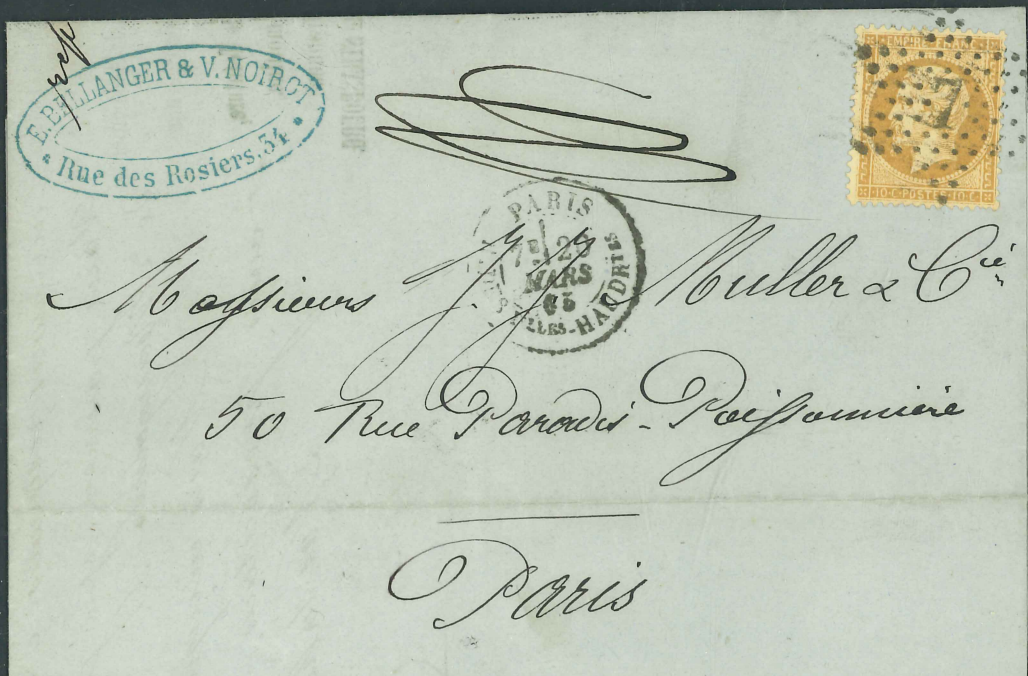 rép
E. BELLANGER & V. NOIROT
Rue des Rosiers, 34
EMPIRE FRANC
7
10 C POSTES 10 C
PARIS
7E 26
MARS
65
LLES-HAUDRTES
Messieurs J. J. Muller & Cie
50 Rue Paradis-Poissonnière
Paris